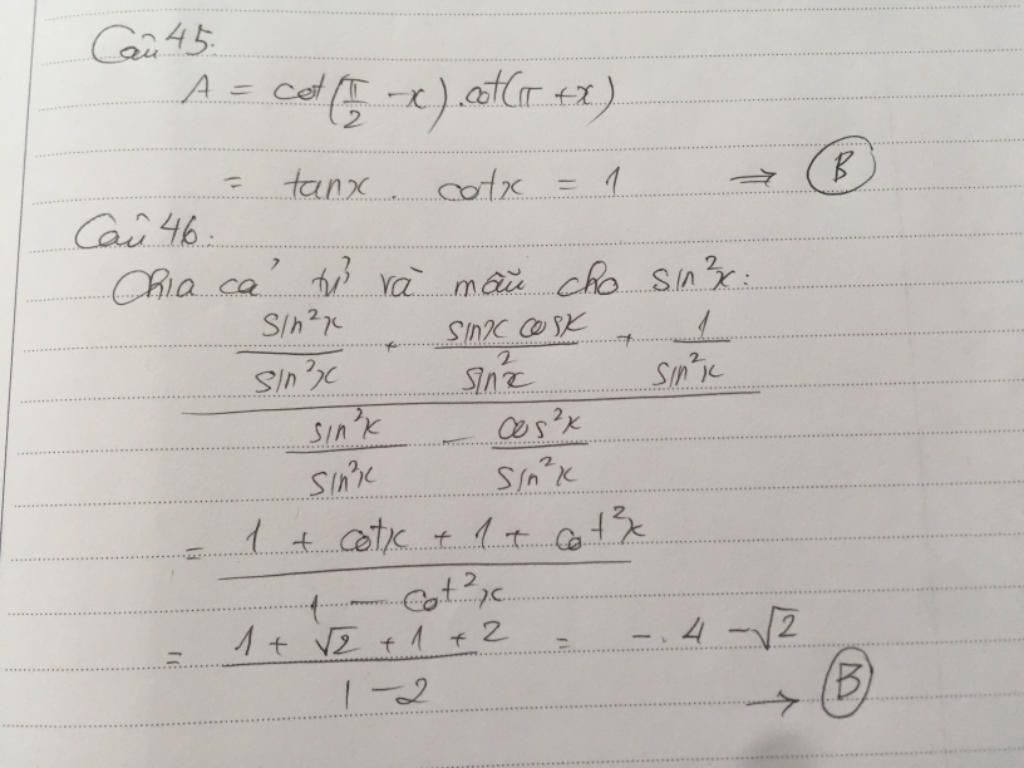 Câu 45:
A = cot(π/2 - x).cot(π + x)
= tanx . cotx = 1 ⇒ B
Câu 46:
Chia cả tử và mẫu cho sin²x:
sin²x/sin²x + sinx cosx/sin²x + 1/sin²x
sin²x/sin²x - cos²x/sin²x
= 1 + cotx + 1 + cot²x
1 - cot²x
= 1 + √2 + 1 + 2 = -.4 - √2
1 - 2 → B